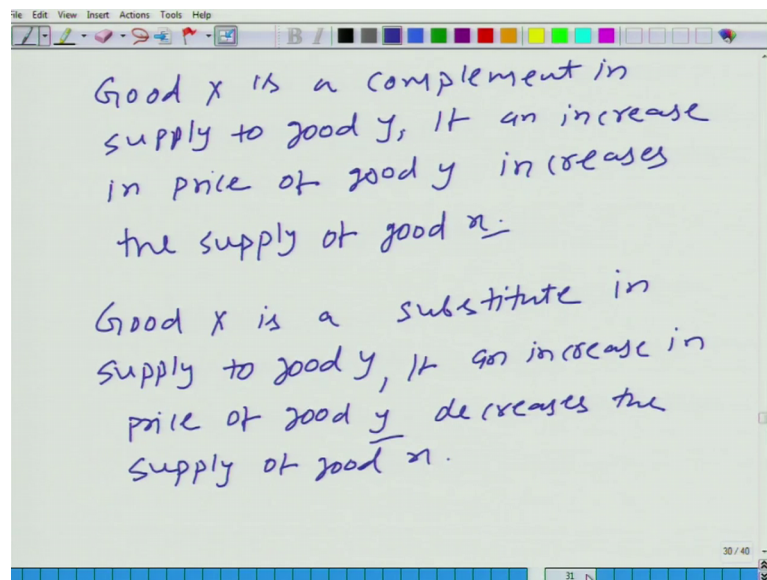 File Edit View Insert Actions Tools Help
B I
Good x is a complement in
supply to good y, If an increase
in price of good y increases
the supply of good x.
Good x is a substitute in
supply to good y, If an increase in
price of good y decreases the
supply of good x.
30 / 40
31